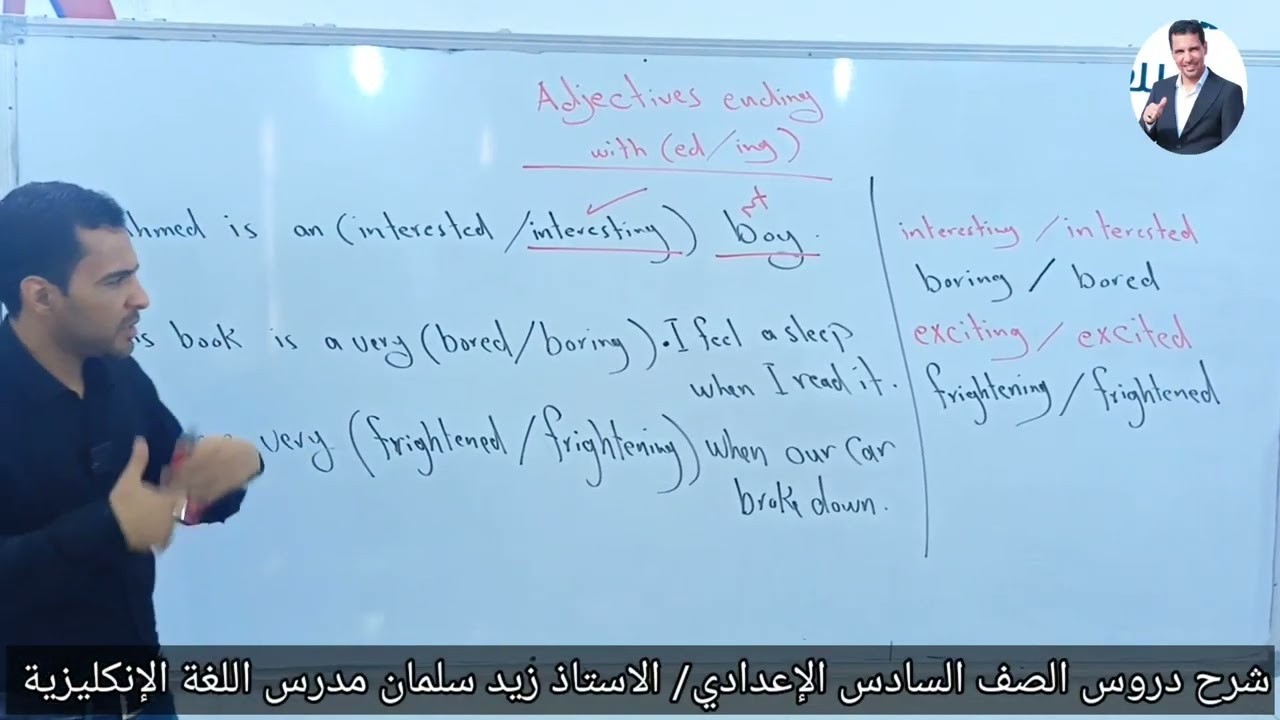 Adjectives ending
with (ed/ing)
hmed is an (interested /interesting) boy.
is book is a very (bored/boring). I feel asleep
when I read it.
very (frightened/frightening) when our car
broke down.
interesting / interested
boring / bored
exciting / excited
frightening / frightened
شرح دروس الصف السادس الإعدادي/ الاستاذ زيد سلمان مدرس اللغة الإنكليزية